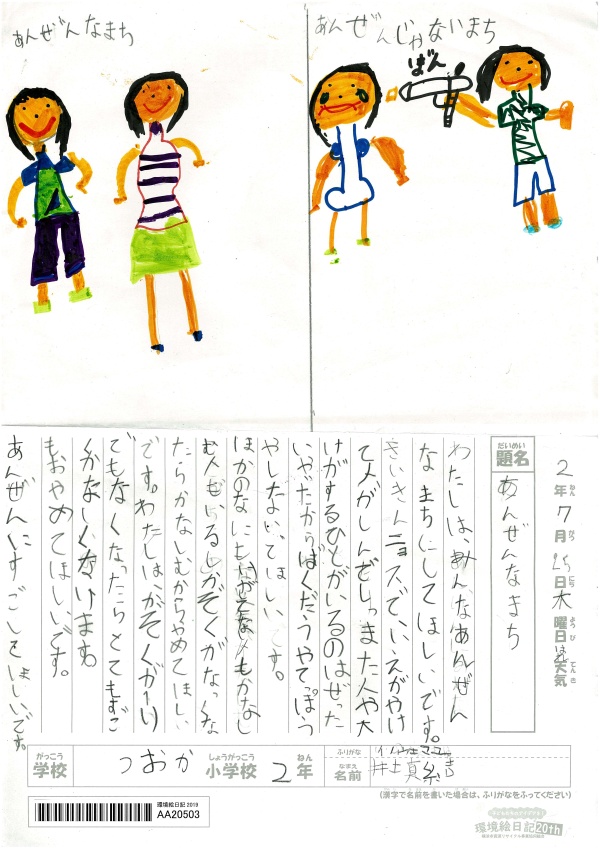 あんぜんなまち
あんぜんじゃないまち
ばん
2年7月25日木曜日
天気
だいめい
題名
あんぜんなまち
わたしは、みんなあんぜん
なまちにしてほしいです。
さいきんニョスで、いえがやけ
てメがしんでしまた人や大
けがするひとがいるのはぜった
いやだからばくだうやてっぽう
やしないでほしいです。
ほかのなにも
たらかなしむからやめてほしい
です。わたしは、かぞくが1り
でもなくなったらとてもすご
くかなしくないます。
もおやめてほしいです。
あんぜんにすごしてほしいです。
がっこう
学校
つおか
しょうがっこう
小学校
2年
ふりがな
なまえ
名前
(漢字で名前を書いた場合は、ふりがなをふってください)
環境絵日記 2019
AA20503
環境絵日記20th